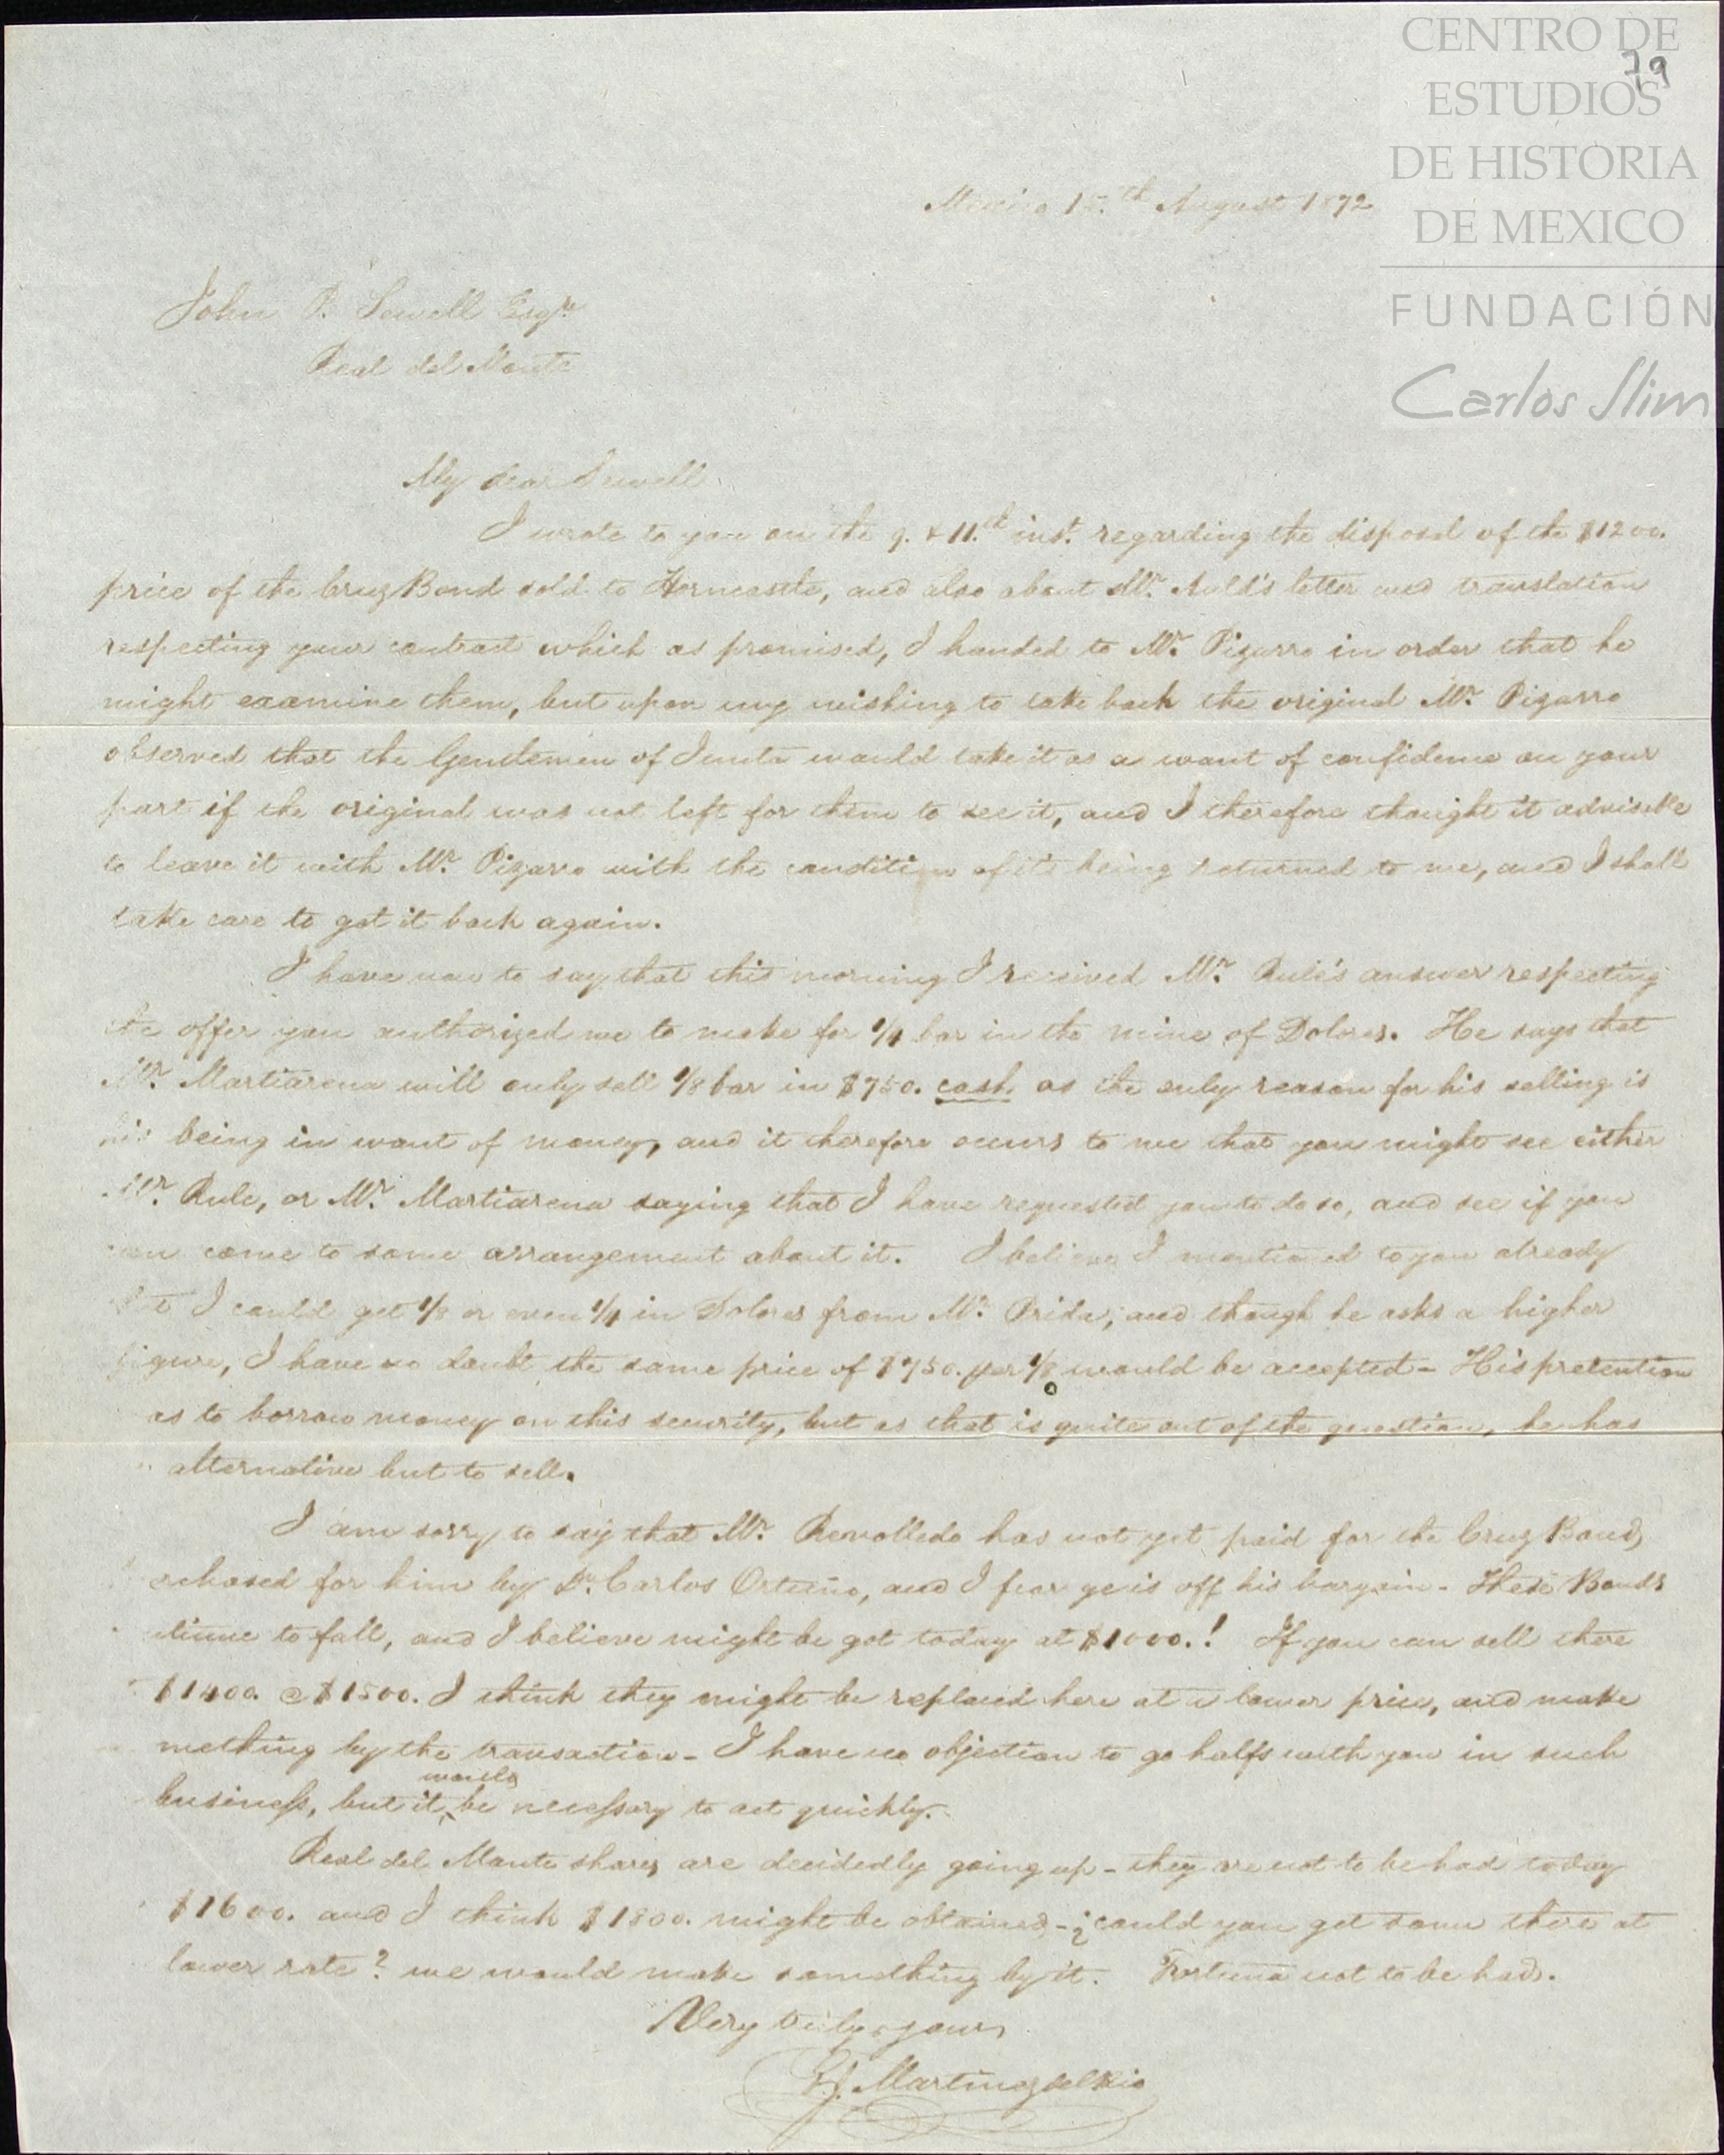 CENTRO DE
ESTUDIOS
DE HISTORIA
DE MEXICO
FUNDACIÓN
Carlos Slim
79
Mexico 15.th August 1872
John P. Sewell Esqre
Real del Monte
My dear Sewell.
I wrote to you on the 9. & 11.th inst. regarding the disposal of the $1200.
price of the Cruz Bond sold to Horncastle, and also about Mr. Auld's letter and translation
respecting your contract which as promised, I handed to Mr. Pizarro in order that he
might examine them, but upon my wishing to take back the original Mr. Pizarro
observed that the Gentlemen of Junta would take it as a want of confidence on your
part if the original was not left for them to see it, and I therefore thought it advisable
to leave it with Mr. Pizarro with the condition of its being returned to me, and I shall
take care to get it back again.
I have now to say that this morning I received Mr. Rule's answer respecting
the offer you authorized me to make for 1/4 bar in the mine of Dolores. He says that
Mr. Martiarena will only sell 1/8 bar in $750. cash, as the only reason for his selling is
his being in want of money, and it therefore occurs to me that you might see either
Mr. Rule, or Mr. Martiarena saying that I have requested you to do so, and see if you
can come to some arrangement about it. I believe I mentioned to you already
that I could get 1/8 or even 1/4 in Dolores from Mr. Prida, and though he asks a higher
figure, I have no doubt the same price of $750. per 1/8 would be accepted - His pretention
as to borrow money on this security, but as that is quite out of the question, he has
alternative but to sell.
I am sorry to say that Mr. Revolledo has not yet paid for the Cruz Bond,
rchased for him by Dn. Carlos Ortuño, and I fear ye is off his bargain - These Bonds
tinue to fall, and I believe might be got today at $1000.! If you can sell there
$1400. @ $1500. I think they might be replaced here at a lower price, and make
mething by the transaction - I have no objection to go halfs with you in such
business, but it would be necessary to act quickly.
Real del Monte shares are decidedly going up - they are not to be had today
$1600. and I think $1800. might be obtained - ¿could you get some there at
lower rate? we would make something by it. Fortuna not to be had.
Very truly yours
F. J. Martinez del Rio